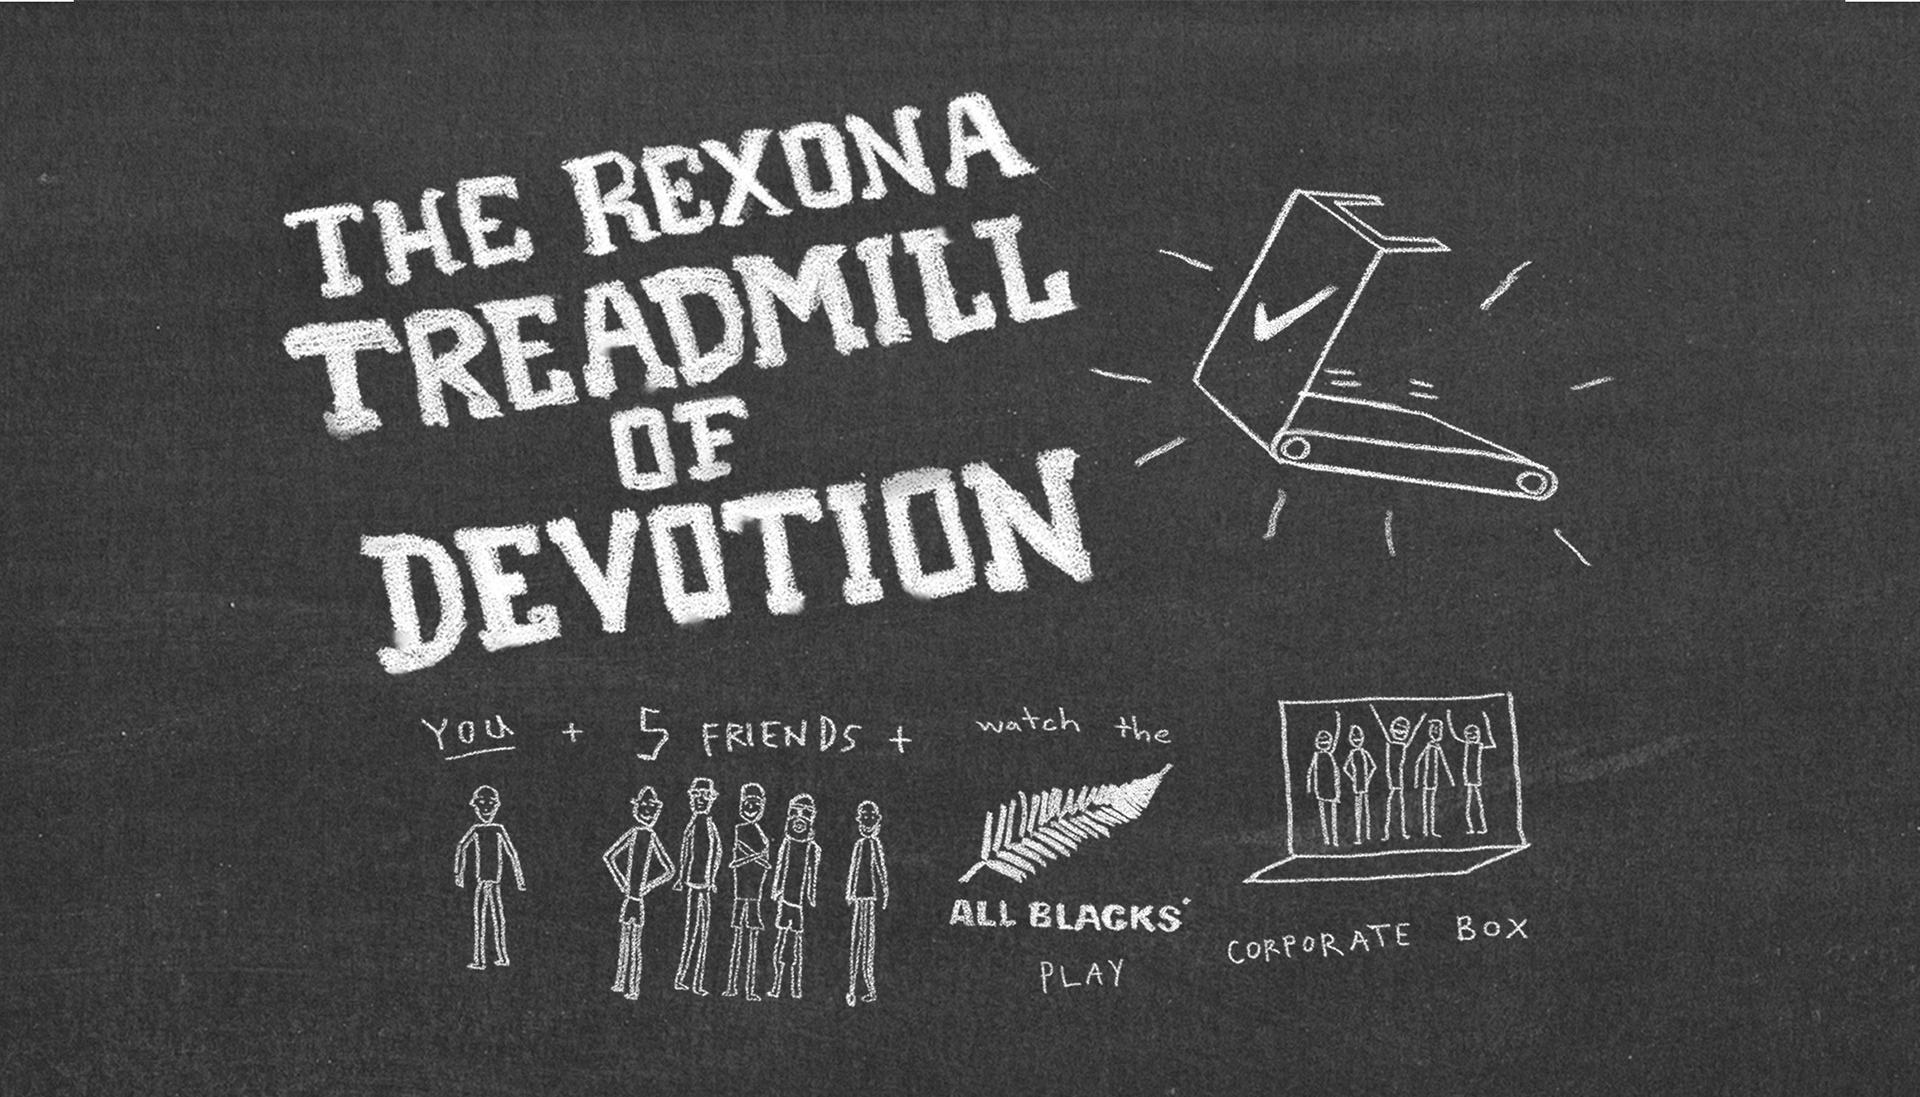 THE REXONA
TREADMILL
OF
DEVOTION
YOU + 5 FRIENDS + watch the
ALL BLACKS
PLAY
CORPORATE BOX